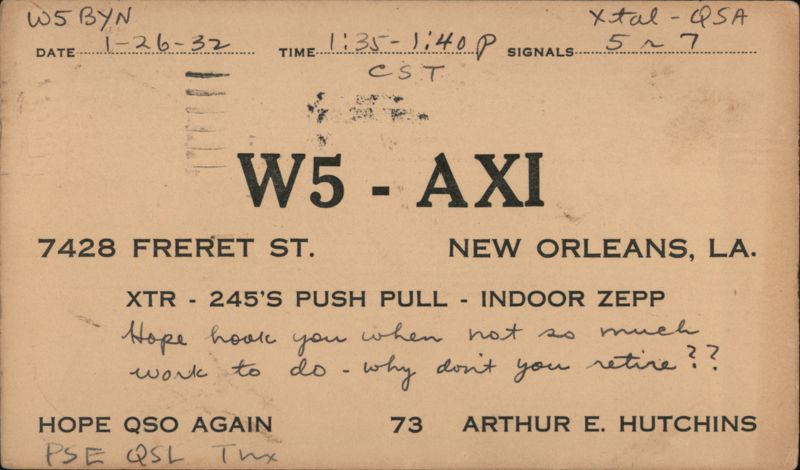 W5BYN Xtal - QSA
DATE 1-26-32 TIME 1:35-1:40 P SIGNALS 5 R 7
CST
W5 - AXI
7428 FRERET ST. NEW ORLEANS, LA.
XTR - 245'S PUSH PULL - INDOOR ZEPP
Hope hook you when not so much
work to do - why don't you retire??
HOPE QSO AGAIN 73 ARTHUR E. HUTCHINS
PSE QSL Tnx